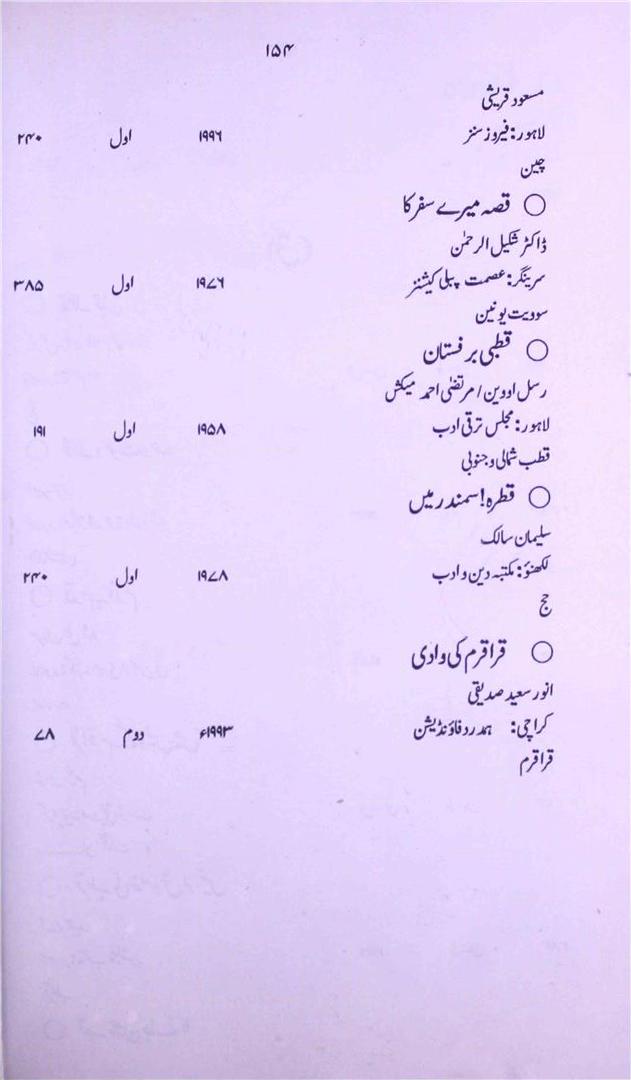 ۱۵۴
مسعود قریشی
لاہور: فیروز سنز ۱۹۹۶ اول ۲۴۰
چین
○ قصہ میرے سفر کا
ڈاکٹر شکیل الرحمٰن
سرینگر: عصمت پبلی کیشنز ۱۹۷۶ اول ۳۸۵
سوویت یونین
○ قطبی برفستان
رسل اووین / مرتضٰی احمد میکش
لاہور: مجلس ترقی ادب ۱۹۵۸ اول ۱۹۱
قطب شمالی و جنوبی
○ قطرہ! سمندر میں
سلیمان سالک
لکھنؤ: مکتبہ دین و ادب ۱۹۷۸ اول ۲۴۰
حج
○ قراقرم کی وادی
انور سعید صدیقی
کراچی: ہمدرد فاؤنڈیشن ۱۹۹۳ء دوم ۷۸
قراقرم